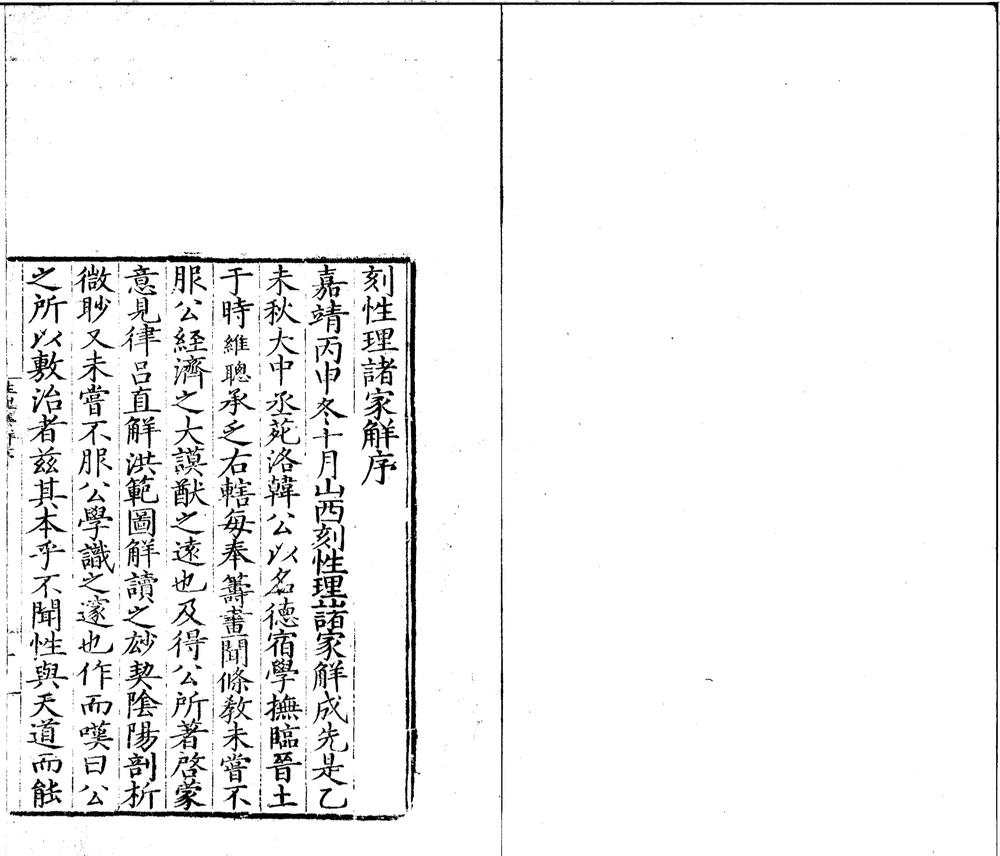 刻性理諸家解序
嘉靖丙申冬十月山西刻性理諸家解成先是乙
未秋大中丞苑洛韓公以名德宿學撫臨晉土
于時維聰承乏右轄每奉籌畫聞條教未嘗不
服公經濟之大謨猷之遠也及得公所著啓蒙
意見律呂直解洪範圖解讀之玅契隂陽剖析
微眇又未嘗不服公學識之邃也作而嘆曰公
之所以敷治者兹其本乎不聞性與天道而能